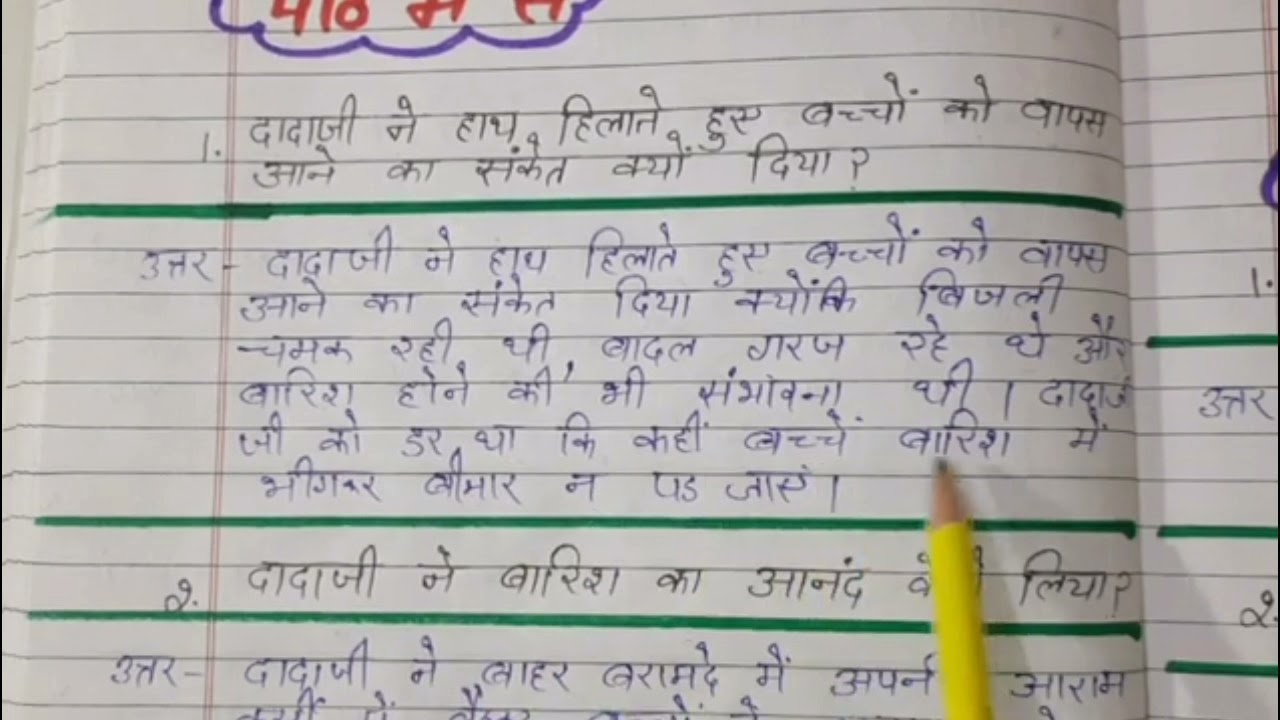 पाठ में से
1. दादाजी ने हाथ हिलाते हुए बच्चों को वापस
आने का संकेत क्यों दिया?
उत्तर- दादाजी ने हाथ हिलाते हुए बच्चों को वापस
आने का संकेत दिया क्योंकि बिजली
चमक रही थी, बादल गरज रहे थे और
बारिश होने की भी संभावना थी।
जी को डर था कि कहीं बच्चें बारिश में
भीगकर बीमार न पड जाएं।
2. दादाजी ने बारिश का आनंद लिया?
उत्तर- दादाजी ने बाहर बरामदे में आराम
1.
उत्तर
2.